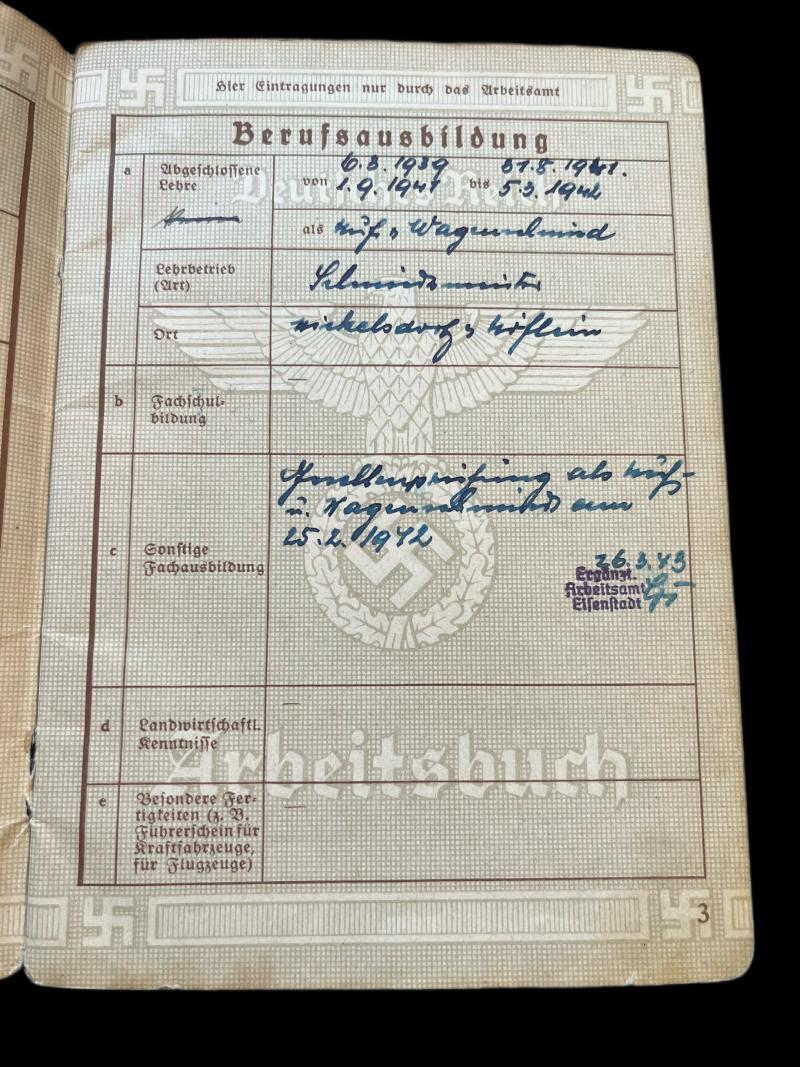 Hier Eintragungen nur durch das Arbeitsamt
Berufsausbildung
a
Abgeschlossene
Lehre
6.3.1939 31.8.1941.
von 1.9.1941 bis 5.3.1942
als Huf u Wagenschmied
Lehrbetrieb
(Art)
Schmiedemeister
Ort
Nickelsdorf u Höflein
b
Fachschul-
bildung
—
c
Sonstige
Fachausbildung
Gesellenprüfung als Huf-
u. Wagenschmied am
25.2.1942
26.3.43
Ergänzt.
Arbeitsamt
Eisenstadt
d
Landwirtschaftl.
Kenntnisse
—
e
Besondere Fer-
tigkeiten (z. B.
Führerschein für
Kraftfahrzeuge,
für Flugzeuge)
—
Deutsches Reich
Arbeitsbuch
3